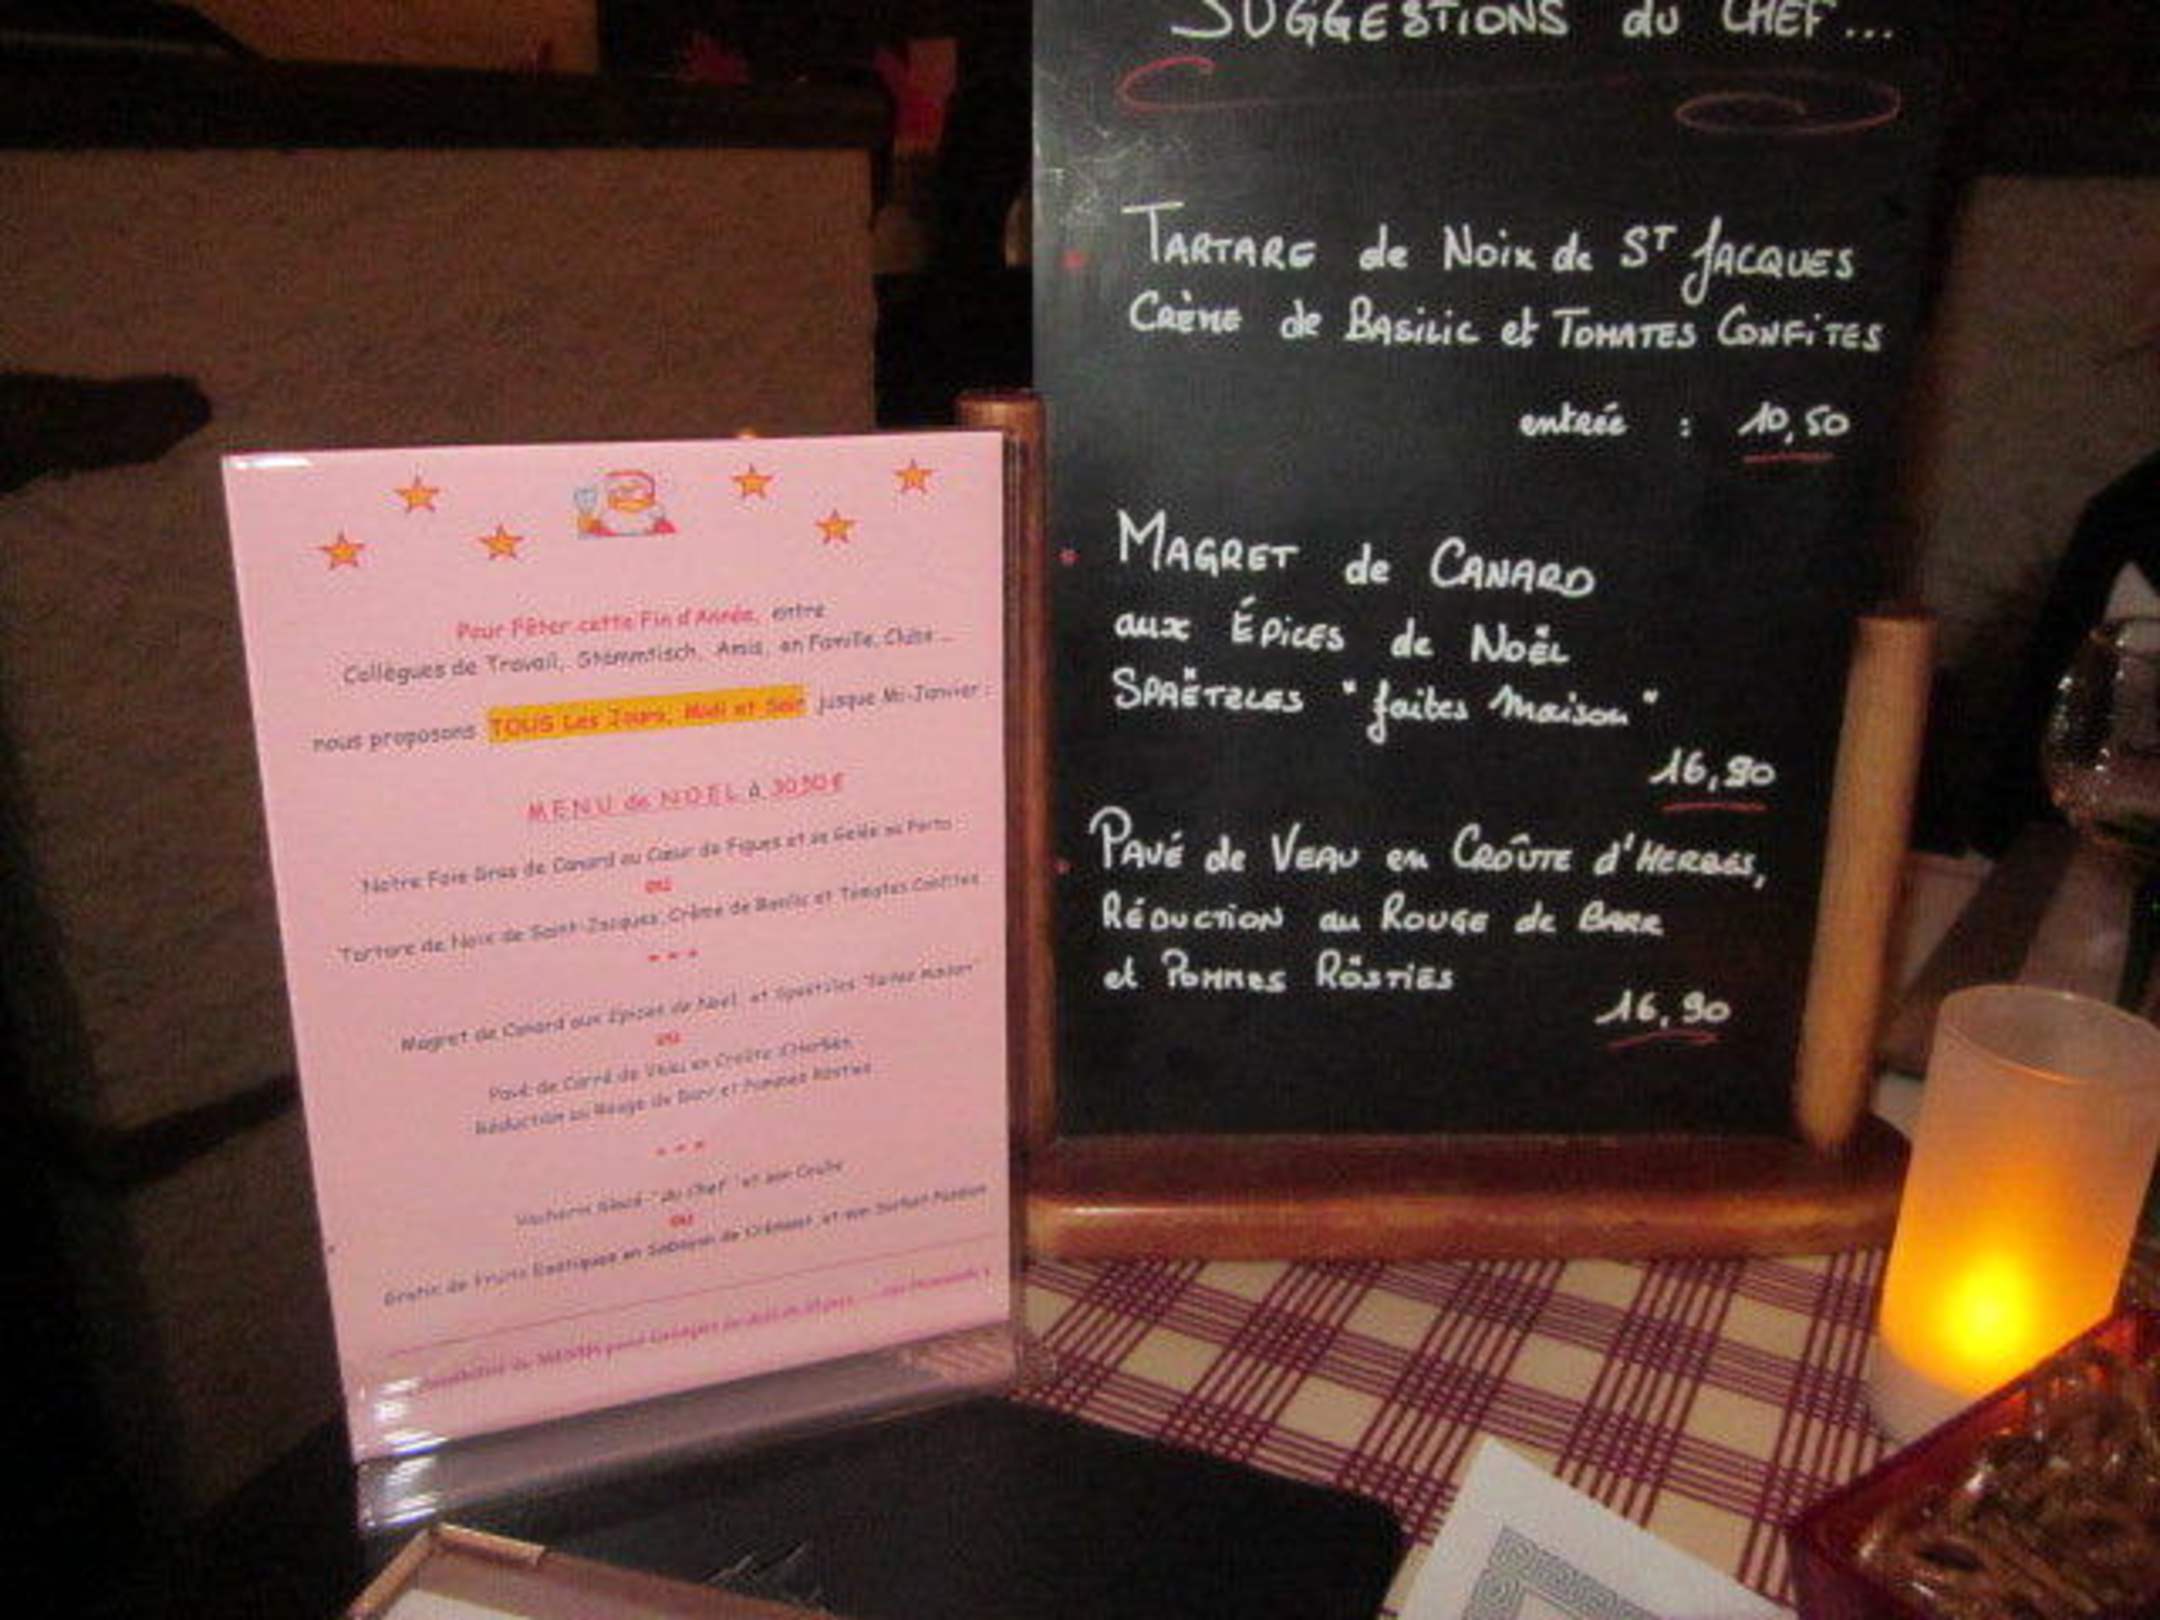 SUGGESTIONS du CHEF...
TARTARE de Noix de ST JACQUES
CRÈME de BASILIC et TOMATES CONFITES
entrée : 10,50
MAGRET de CANARD
aux ÉPICES de NOËL
SPAËTZLES "faites Maison"
16,90
PAVÉ de VEAU en CROÛTE d'HERBES,
RÉDUCTION au ROUGE de BARR
et POMMES RÖSTIES
16,90
Pour Fêter cette Fin d'Année, entre
Collègues de Travail, Stammtisch, Amis, en Famille, Clubs ...
nous proposons TOUS Les Jours, Midi et Soir jusque Mi-Janvier :
MENU de NOEL à 30.50 €
Notre Foie Gras de Canard au Cœur de Figues et sa Gelée au Porto
OU
Tartare de Noix de Saint-Jacques, Crème de Basilic et Tomates Confites
* * *
Magret de Canard aux Epices de Noel et Spaetzles "faites Maison"
OU
Pavé de Carré de Veau en Croûte d'Herbes,
Réduction au Rouge de Barr et Pommes Rösties
* * *
Vacherin Glacé "du Chef" et son Coulis
OU
Gratin de Fruits Exotiques en Sabayon de Crémant, et son Sorbet Passion
MENUS pour Groupes